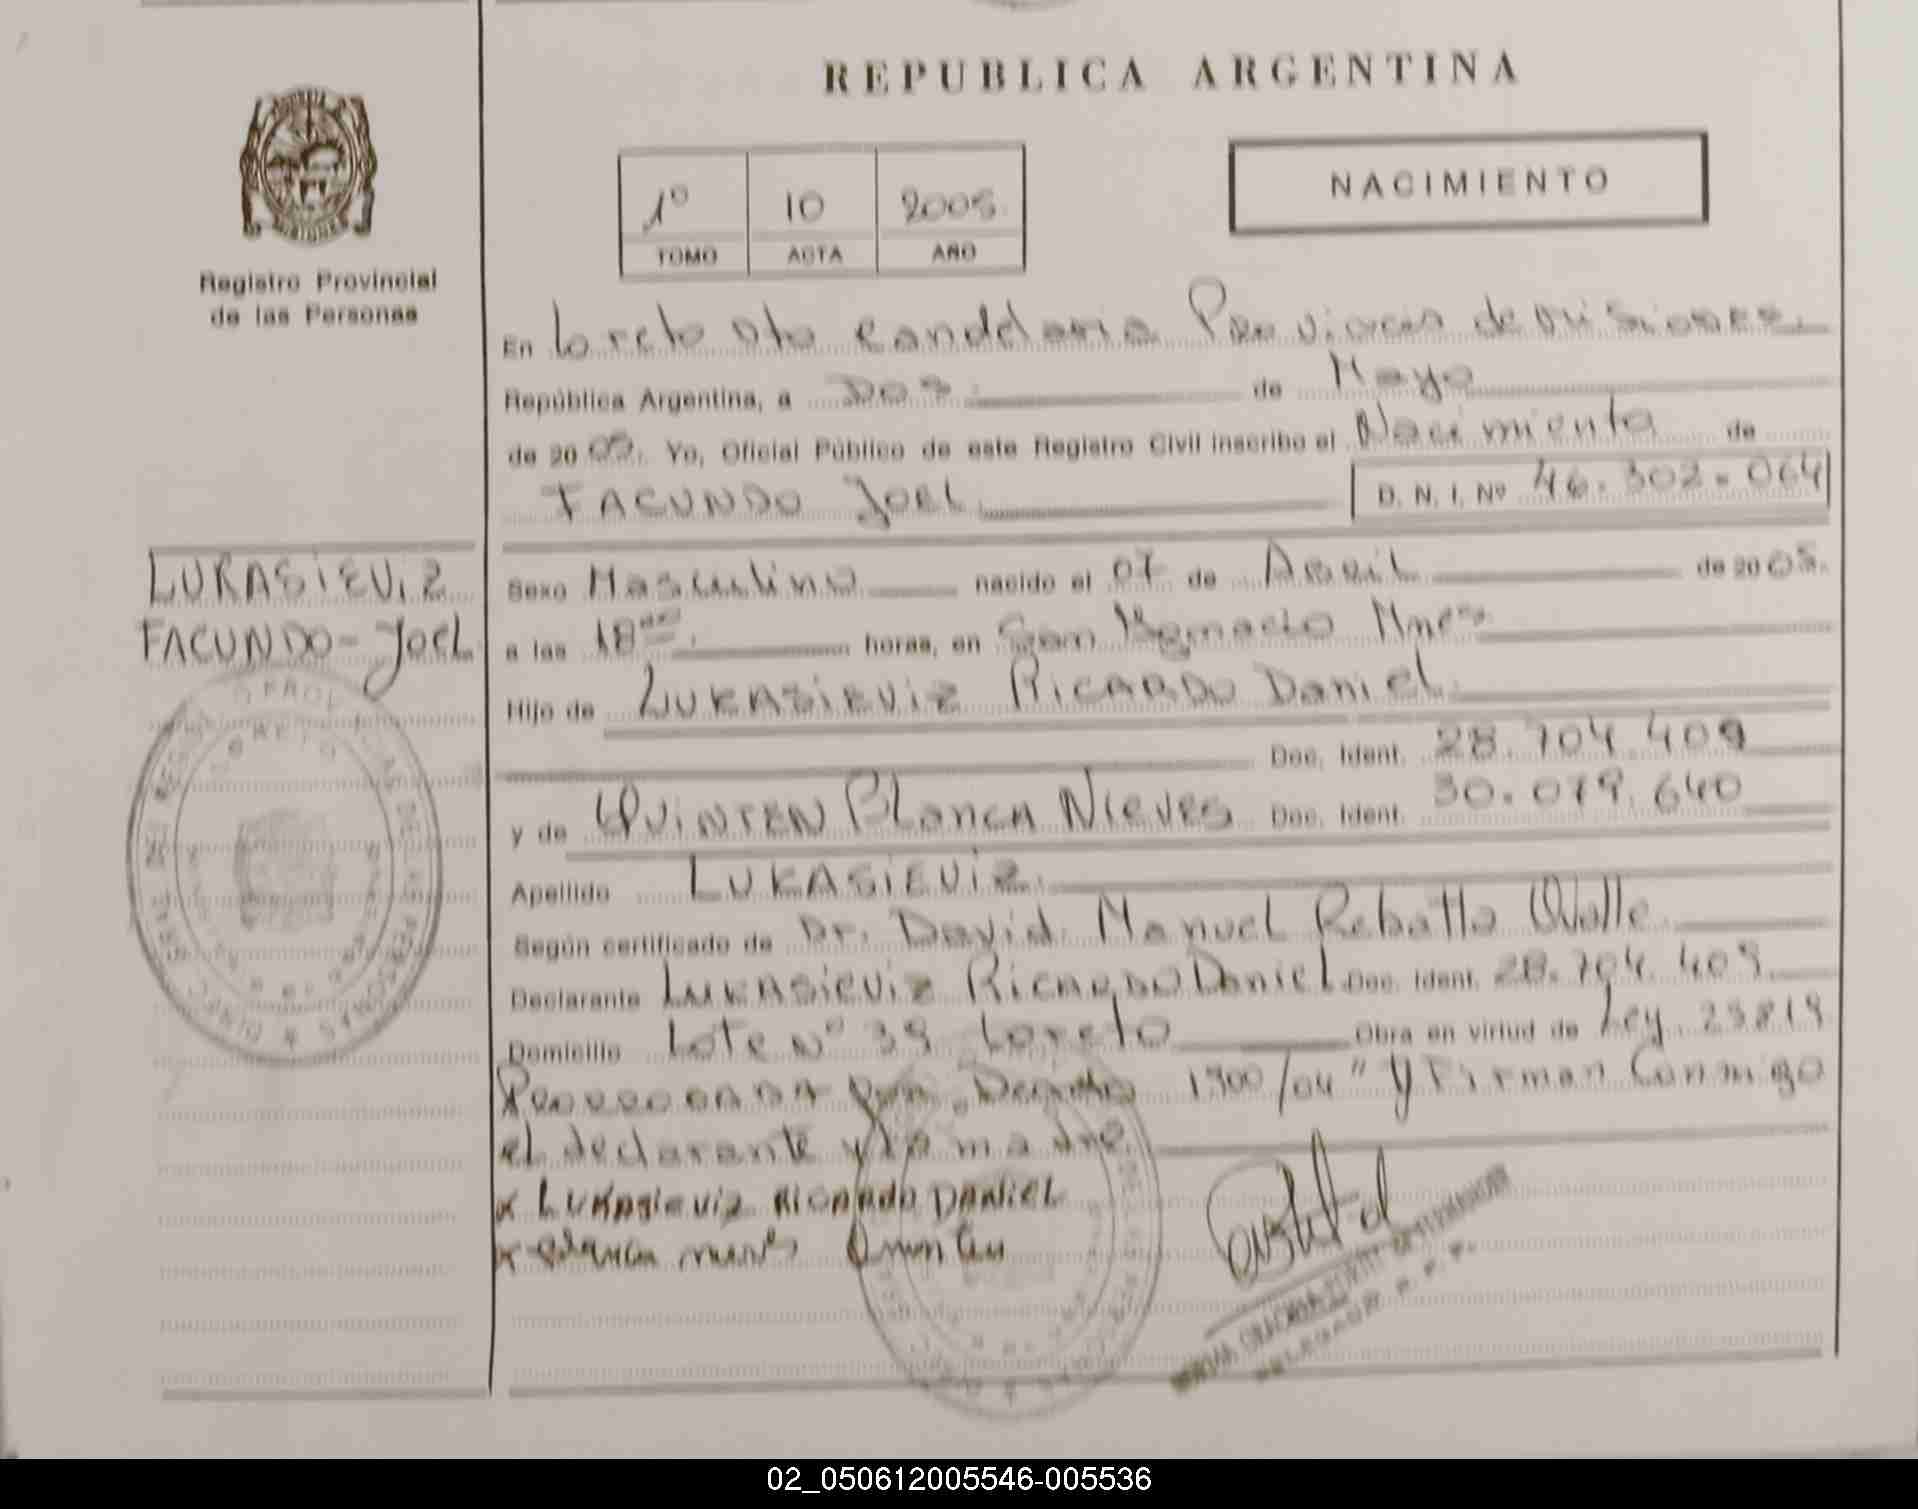 REPUBLICA ARGENTINA
MISIONES
Registro Provincial
de las Personas
1º 10 2005
TOMO ACTA AÑO
NACIMIENTO
En Loreto Dto Candelaria Provincia de Misiones.
República Argentina, a Dos de Mayo
de 2005. Yo, Oficial Público de este Registro Civil inscribo el Nacimiento de
FACUNDO JOEL D. N. I. Nº 46.302.064
LUKASIEVIZ
FACUNDO-JOEL
Sexo Masculino nacido el 07 de Abril de 2005.
a las 18 horas, en San Ignacio Mnes
Hijo de LUKASIEVIZ RICARDO DANIEL
Doc. Ident. 28.704.409
y de QUINTEN BLANCA NIEVES Doc. Ident. 30.079.640
Apellido LUKASIEVIZ.
Según certificado de Dr. David Manuel Rebatta
Declarante LUKASIEVIZ RICARDO DANIEL Doc. Ident. 28.704.409
Domicilio Lote Nº 39 Loreto Obra en virtud de Ley 23819
por Decreto 1900/04" y Firman Conmigo
el declarante y la madre.
x LUKASIEVIZ RICARDO DANIEL
x Blanca nieves Quinten
02_050612005546-005536